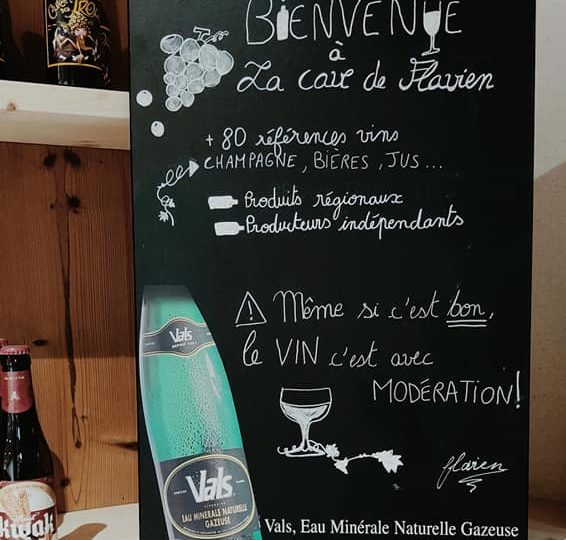 BIENVENUE
à
La cave de Flavien
+ 80 références vins
CHAMPAGNE, BIÈRES, JUS...
Produits régionaux
Producteurs indépendants
⚠ Même si c'est bon,
le VIN c'est avec
MODÉRATION!
flavien
Vals
Vals
EAU MINERALE NATURELLE
GAZEUSE
Vals, Eau Minérale Naturelle Gazeuse
kwak